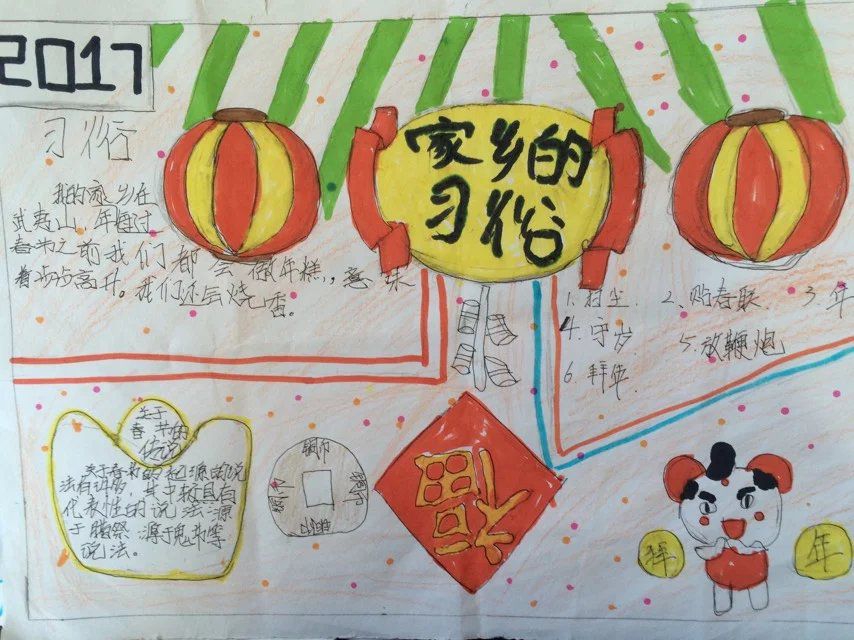 2017
家乡的
习俗
习俗
我的家乡在
武夷山,年每过
春节之前我们都会做年糕,意味
着步步高升。我们还会烧香。
1.扫尘. 2、贴春联 3.年
4.守岁. 5.放鞭炮
6.拜年.
关于
春节的
传说
关于春节的起源的说
法有
代表性的说法源
于腊祭 源于鬼节等
说法。
铜币
福
拜
年